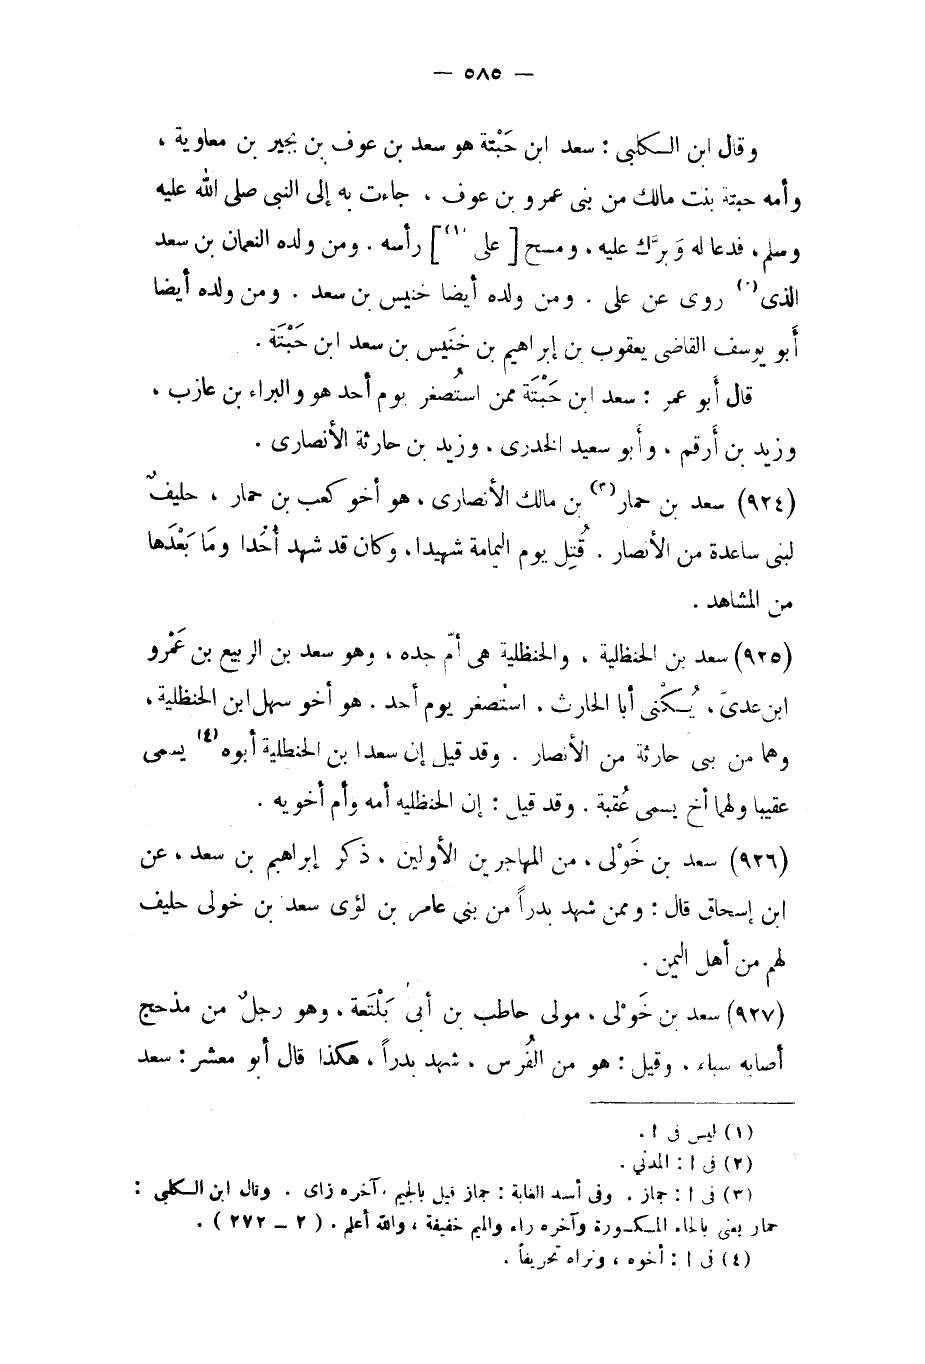 — ٥٨٥ —
وقال ابن الكلبى : سعد ابن حَبْتة هو سعد بن عوف بن بجير بن معاوية ،
وأمه حبتة بنت مالك من بنى عمرو بن عوف ، جاءت به إلى النبى صلى الله عليه
وسلم ، فدعا له وَبرَّك عليه ، ومسح [ على (١) ] رأسه . ومن ولده النعمان بن سعد
الذى (٢) روى عن على . ومن ولده أيضا خنيس بن سعد . ومن ولده أيضا
أبو يوسف القاضى يعقوب بن إبراهيم بن خُنَيس بن سعد ابن حَبْتَة .
قال أبو عمر : سعد ابن حَبْتَة ممن استُصغر يوم أحد هو والبراء بن عازب ،
وزيد بن أرقم ، وأبو سعيد الخدرى ، وزيد بن حارثة الأنصارى .
(٩٢٤) سعد بن حمار (٣) بن مالك الأنصارى ، هو أخو كعب بن حمار ، حليفٌ
لبنى ساعدة من الأنصار . قُتِل يوم اليمامة شهيدا ، وكان قد شهد أُحُدا ومَا بَعْدَها
من المشاهد .
(٩٢٥) سعد بن الحنظلية ، والحنظلية هى أمّ جده ، وهو سعد بن الربيع بن عَمْرو
ابن عدىّ ، يُكْنى أبا الحارث . استْصغر يوم أحد . هو أخو سهل ابن الحنظلية ،
وهما من بنى حارثة من الأنصار . وقد قيل إن سعدا بن الحنطلية أبوه (٤) يسمى
عقيبا ولهما أخ يسمى عُقبة . وقد قيل : إن الحنظليه أمه وأم أخويه .
(٩٢٦) سعد بن خَوْلى ، من المهاجرين الأولين ، ذكر إبراهيم بن سعد ، عن
ابن إسحاق قال : وممن شهد بدراً من بنى عامر بن لؤى سعد بن خولى حليف
لهم من أهل اليمن .
(٩٢٧) سعد بن خَوْلى ، مولى حاطب بن أبى بَلْتَعة ، وهو رجلٌ من مذحج
أصابه سباء ، وقيل : هو من الفُرس ، شهد بدراً ، هكذا قال أبو معشر : سعد
(١) ليس فى ا .
(٢) فى ا : المدنى .
(٣) فى ا : جماز . وفى أسد الغابة : جماز قيل بالجيم ، آخره زاى . وقال ابن الكلبى :
حمار يعنى بالحاء المكسورة وآخره راء والميم خفيفة ، والله أعلم . ( ٢ – ٢٧٢ ) .
(٤) فى ا : أخوه ، ونراه تحريفاً .